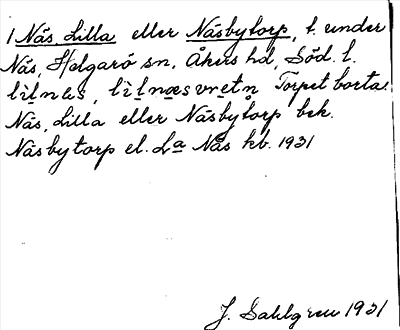 1 Näs, Lilla eller Näsbytorp, t. under
Näs, Helgarö sn, Åkers hd, Söd. l.
Torpet borta!
Näs, Lilla eller Näsbytorp bek.
Näsbytorp el. La Näs kb. 1931
J. Sahlgren 1931